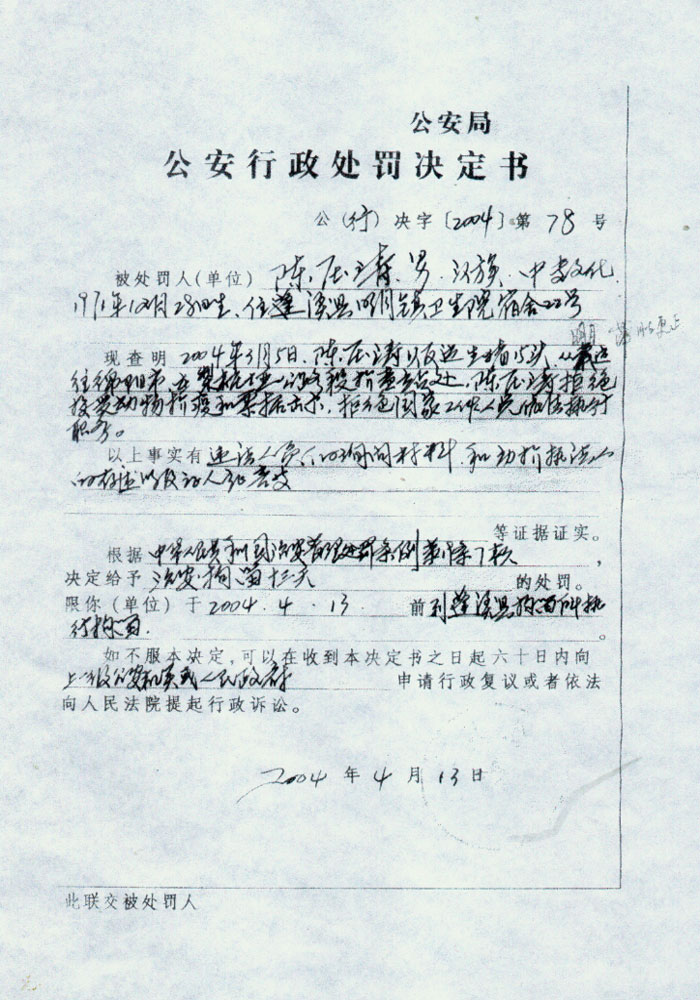 公安局
公安行政处罚决定书
公(行)决字〔2004〕第 78 号
被处罚人(单位) 陈 男.汉族.中 文化.
1971年12月28日生、住蓬溪县明月镇卫生院宿舍22号
明月
现查明 2004年3月5日、陈 以及 生猪15头、从蓬 运
往绵阳市 检查 处、陈 拒绝
接受动物检疫和票据 、拒绝国家工作人员依法执行
职务。
以上事实有 违法人员的询问材料、和动检执法人
的 以及证人 言
等证据证实。
根据 中华人民共和国治安管理处罚条例第 条7款 ,
决定给予 治安拘留 天 的处罚。
限你(单位)于 2004.4.13 前 到蓬溪县拘留所执
行拘留. 。
如不服本决定,可以在收到本决定书之日起六十日内向
上一级公安机关或人民政府 申请行政复议或者依法
向人民法院提起行政诉讼。
2004 年 4 月 13 日
此联交被处罚人